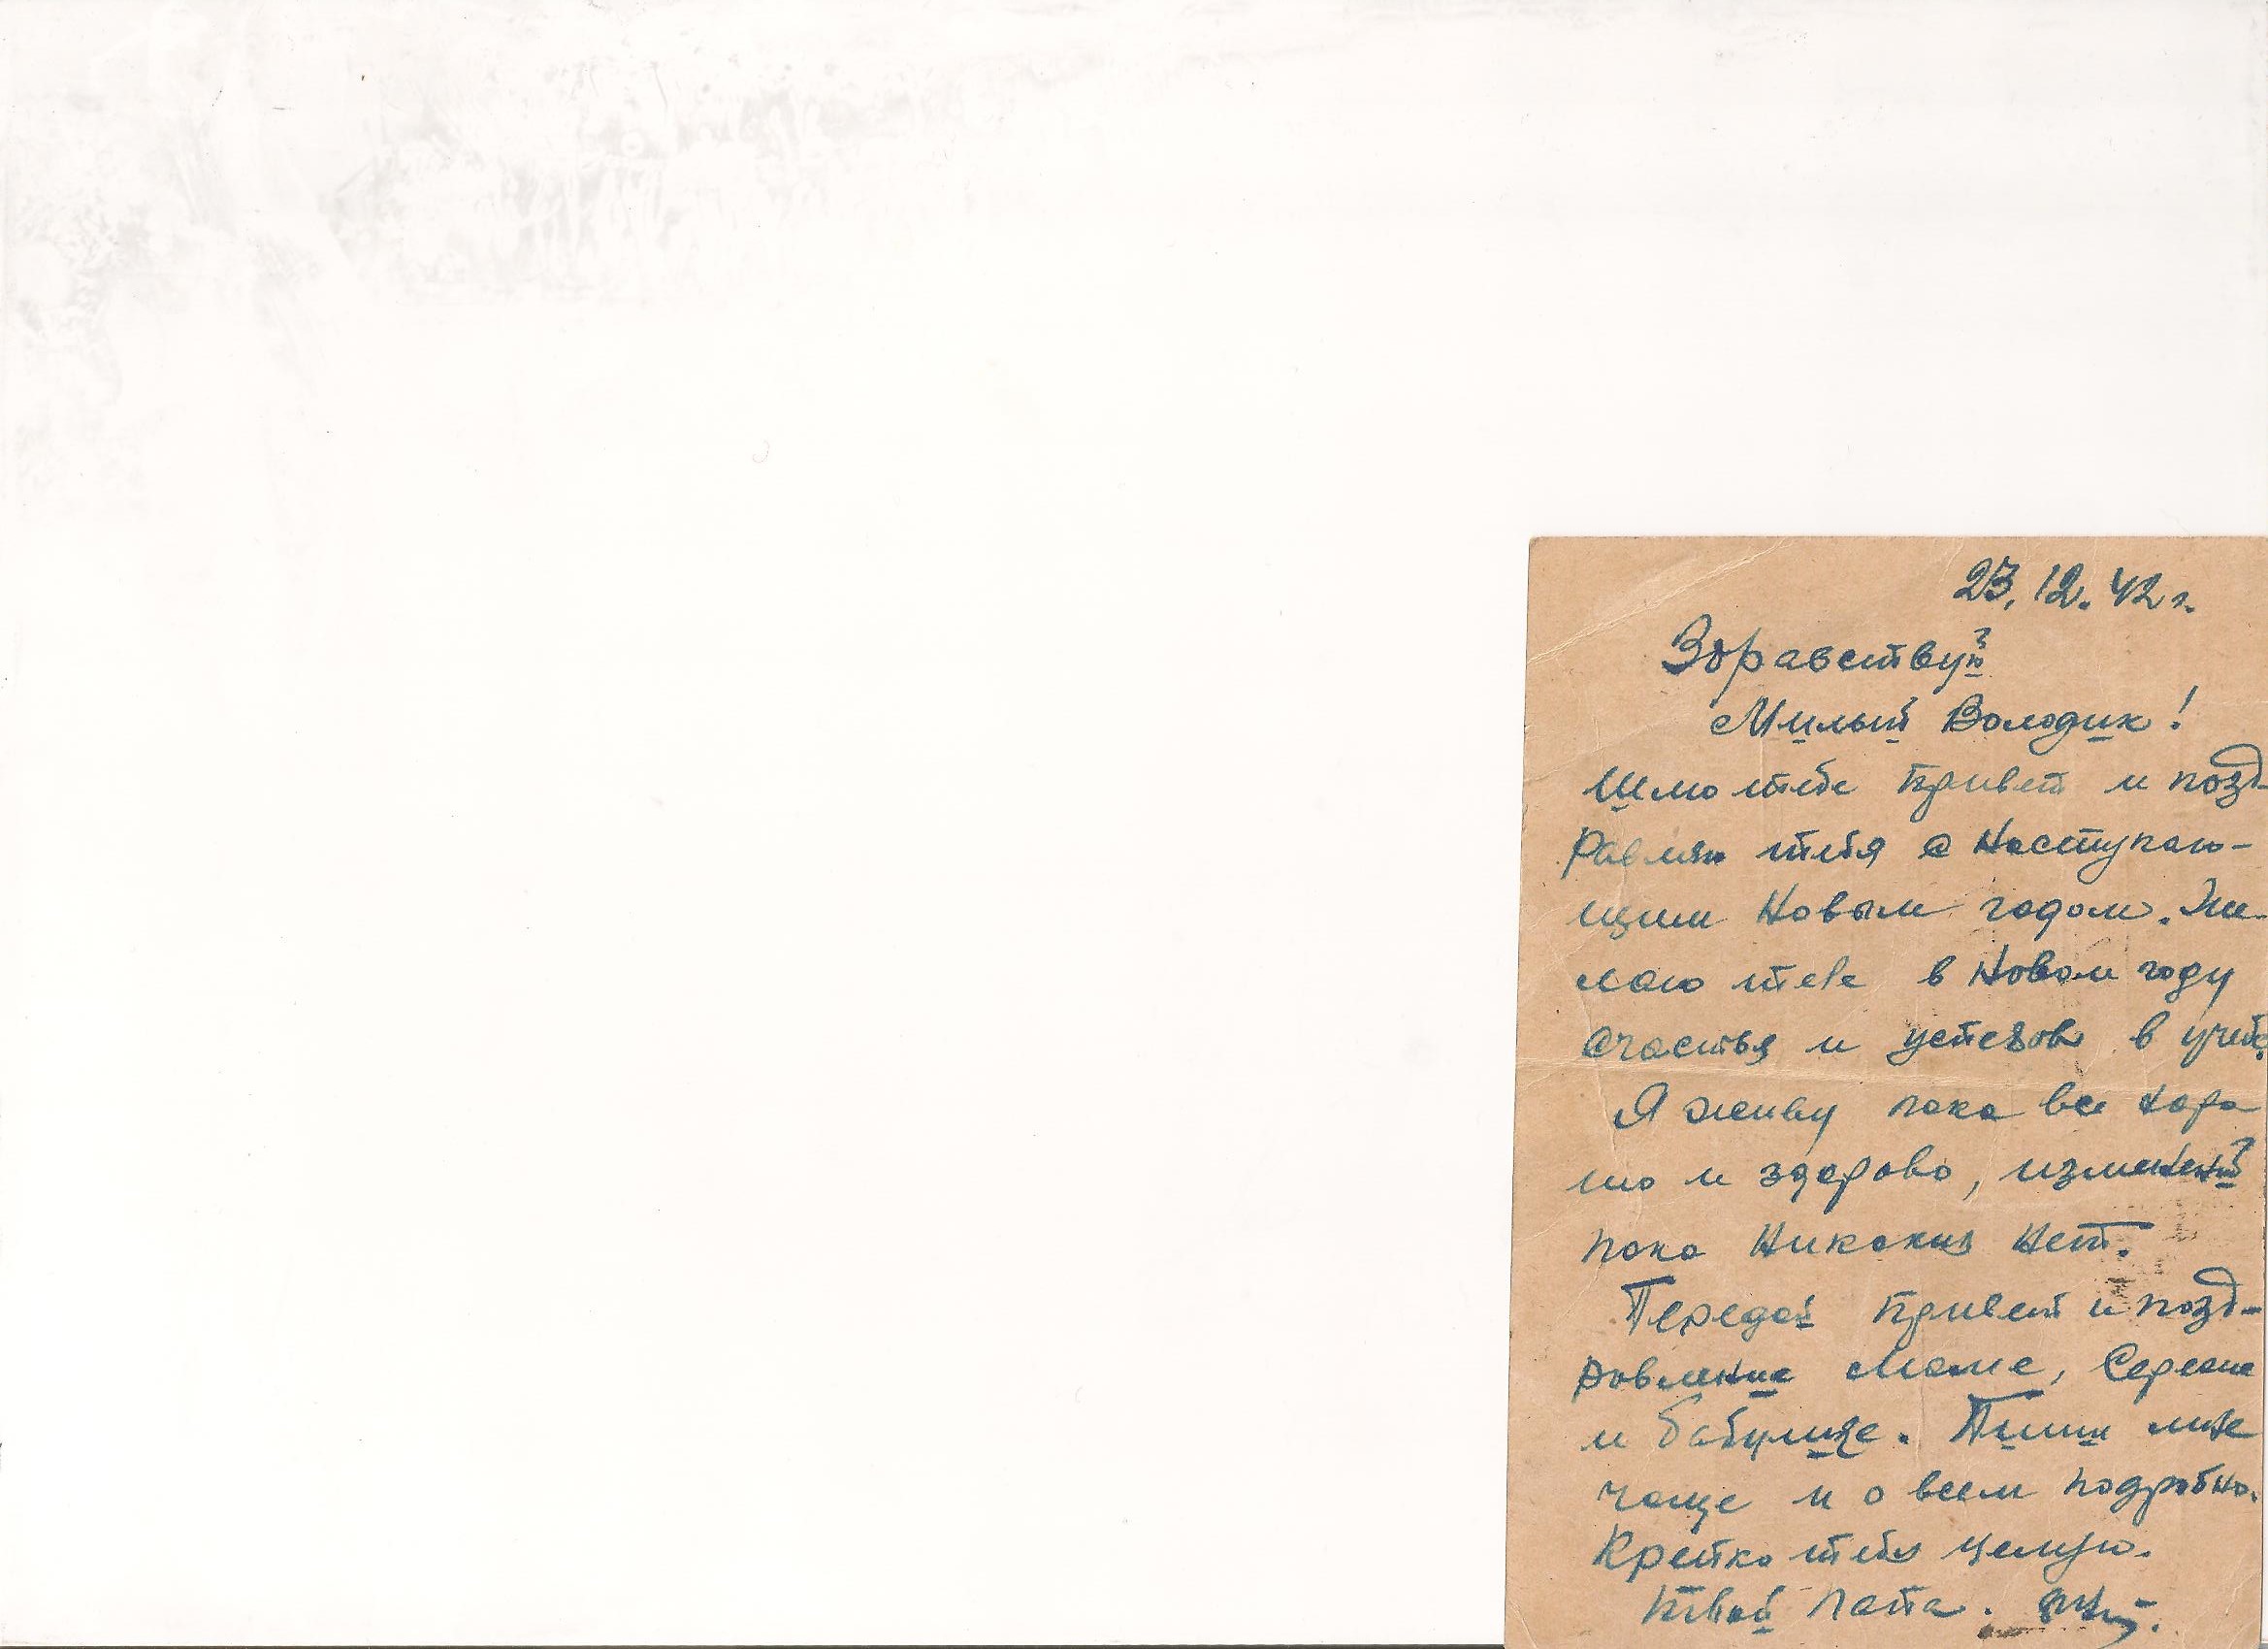 23.12.42 г.
Здравствуй
Милый Володик!
Шлю тебе привет и позд-
равляю тебя с Наступаю-
щим Новым годом. Же-
лаю тебе в Новом году
счастья и успехов в учебе.
Я живу пока все хоро
шо и здорово, изменений
пока никаких нет.
Передай привет и позд-
равление Маме, Сереже
и бабулизе. Пиши мне
чаще и о всем подробно.
Крепко тебя целую.
Твой папа.